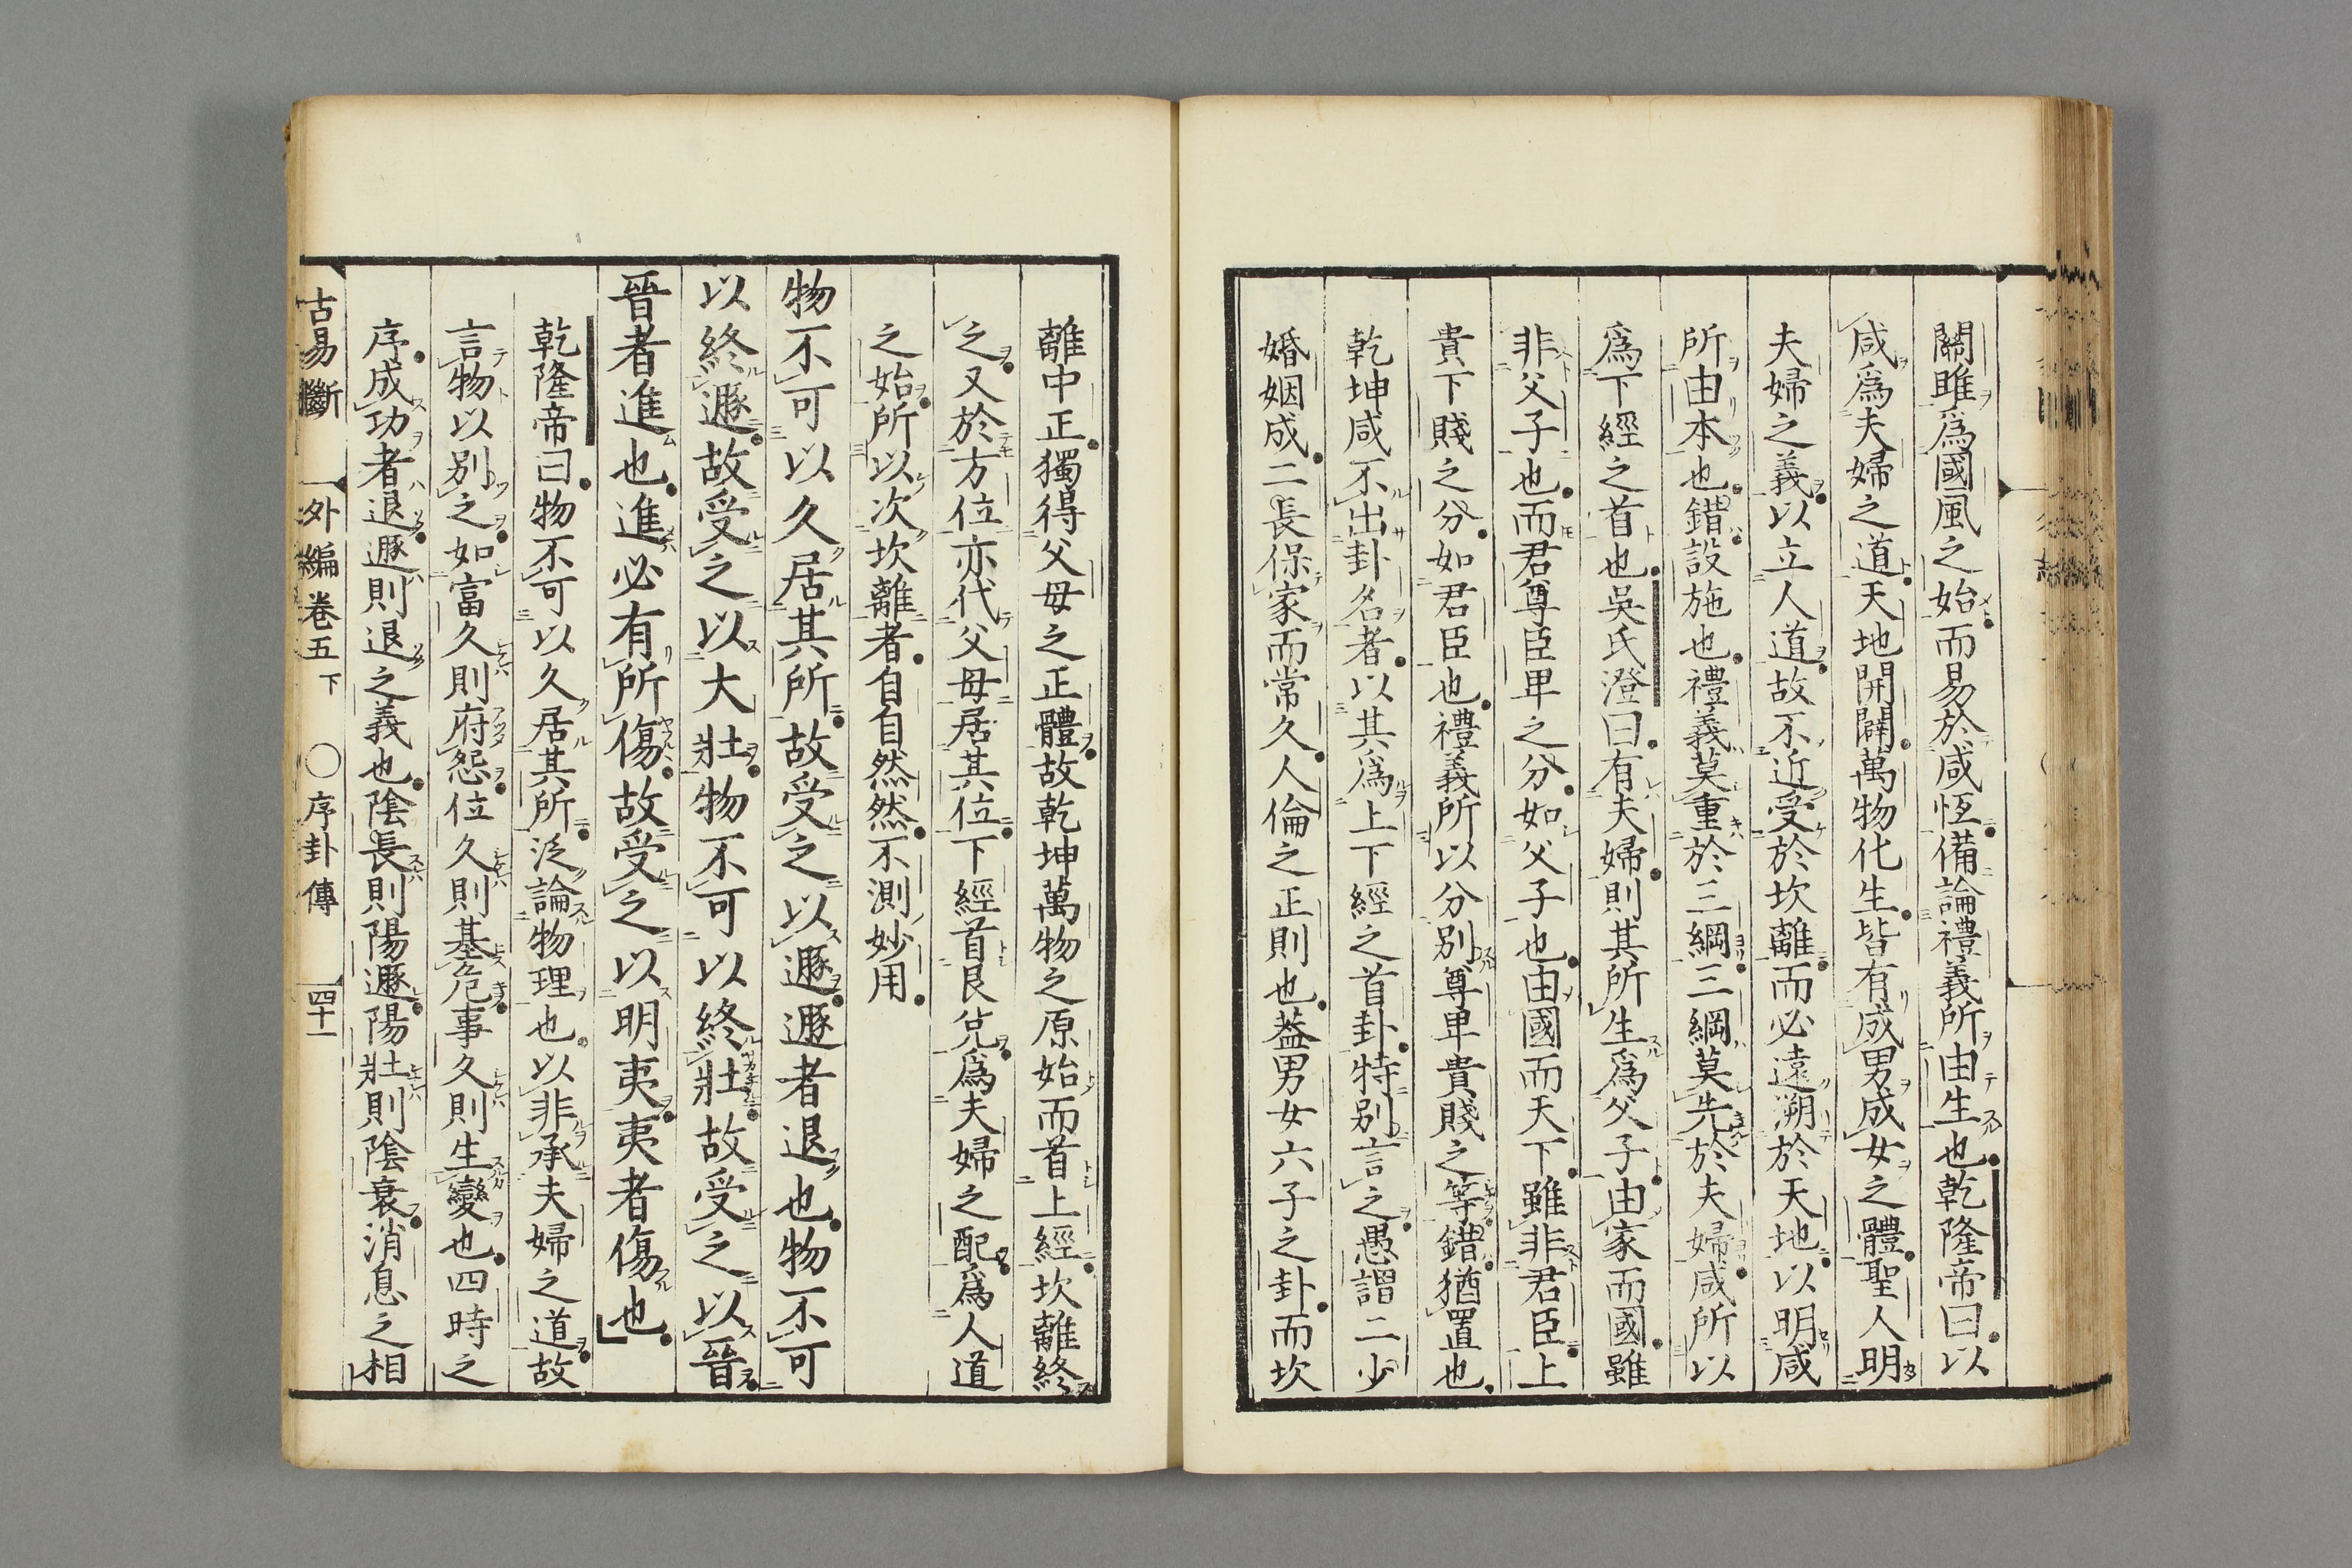 關雎爲國風之始而易於咸恆備論禮義所由生也乾隆帝曰以
咸爲夫婦之道天地開闢萬物化生皆有成男成女之體聖人明
夫婦之義以立人道故不近受於坎離而必遠溯於天地以明咸
所由本也錯設施也禮義莫重於三綱三綱莫先於夫婦咸所以
爲下經之首也吳氏澄曰有夫婦則其所生爲父子由家而國雖
非父子也而君尊臣卑之分如父子也由國而天下雖非君臣上
貴下賤之分如君臣也禮義所以分別尊卑貴賤之等錯猶置也
乾坤咸不出卦名者以其爲上下經之首卦特別言之愚謂二少
婚姻成二長保家而常久人倫之正則也葢男女六子之卦而坎
離中正獨得父母之正體故乾坤萬物之原始而首上經坎離終
之又於方位亦代父母居其位下經首艮兌爲夫婦之配爲人道
之始所以次坎離者自自然然不測妙用
物不可以久居其所故受之以遯遯者退也物不可
以終遯故受之以大壯物不可以終壯故受之以晉
晉者進也進必有所傷故受之以明夷夷者傷也
乾隆帝曰物不可以久居其所泛論物理也以非承夫婦之道故
言物以別之如富久則府怨位久則基危事久則生變也四時之
序成功者退遯則退之義也陰長則陽遯陽壯則陰衰消息之相
古易斷 外編卷五下 ○序卦傳 四十一